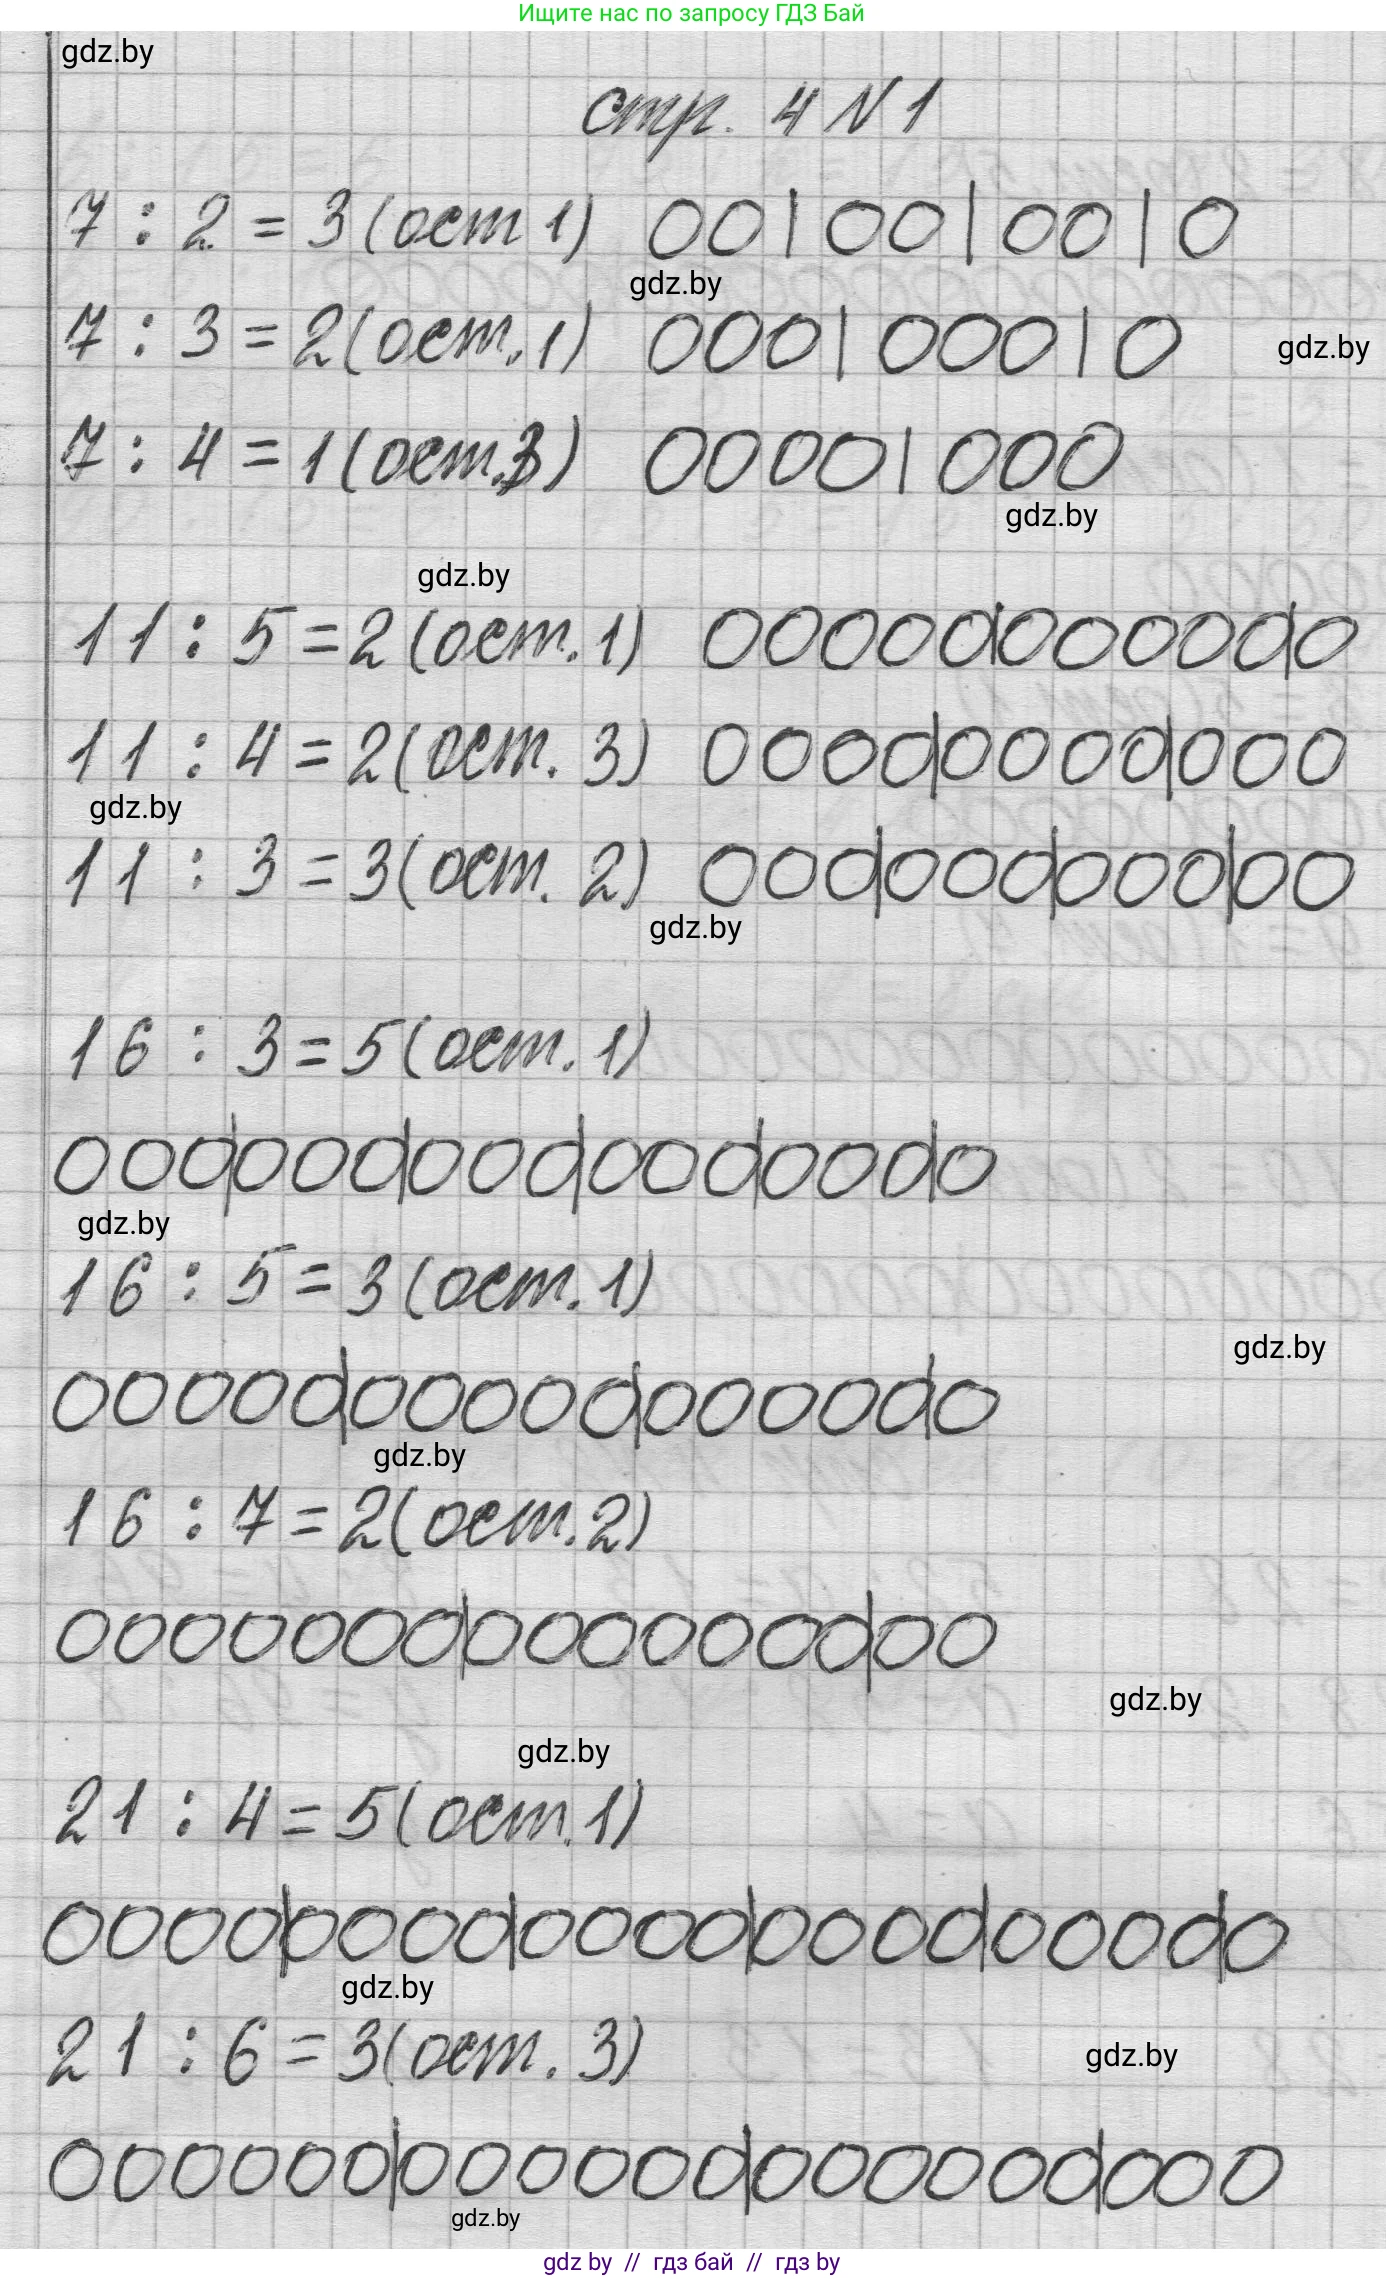 Ищите нас по запросу ГДЗ Бай
gdz.by
стр. 4 N 1
7 : 2 = 3 (ост 1) 00|00|00|0
gdz.by
7 : 3 = 2 (ост. 1) 000|000|0
gdz.by
7 : 4 = 1 (ост. 3) 0000|000
gdz.by
gdz.by
11 : 5 = 2 (ост. 1) 00000|00000|0
11 : 4 = 2 (ост. 3) 0000|0000|000
gdz.by
11 : 3 = 3 (ост. 2) 000|000|000|00
gdz.by
16 : 3 = 5 (ост. 1)
000|000|000|000|000|0
gdz.by
16 : 5 = 3 (ост. 1)
gdz.by
00000|00000|00000|0
gdz.by
16 : 7 = 2 (ост. 2)
0000000|0000000|00
gdz.by
gdz.by
21 : 4 = 5 (ост. 1)
0000|0000|0000|0000|0000|0
gdz.by
21 : 6 = 3 (ост. 3)
gdz.by
000000|000000|000000|000
gdz.by
gdz by // гдз бай // гдз by